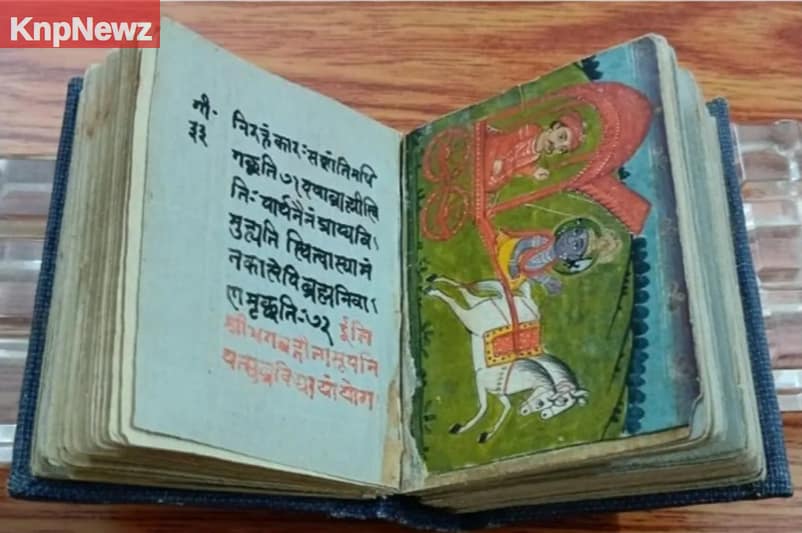 KnpNewz
गी॰
३३
निरहंकारः सशांतिमधि
गच्छति ७१ एषाब्राह्मीस्थि
तिः पार्थनैनंप्राप्यवि।
मुह्यति स्थित्वास्यामं
तकालेपिब्रह्मनिर्वा।
णमृच्छति ॰७२ इति
श्रीभगवद्गीतासूपनि
षत्सुब्रह्मविद्यायांयोग